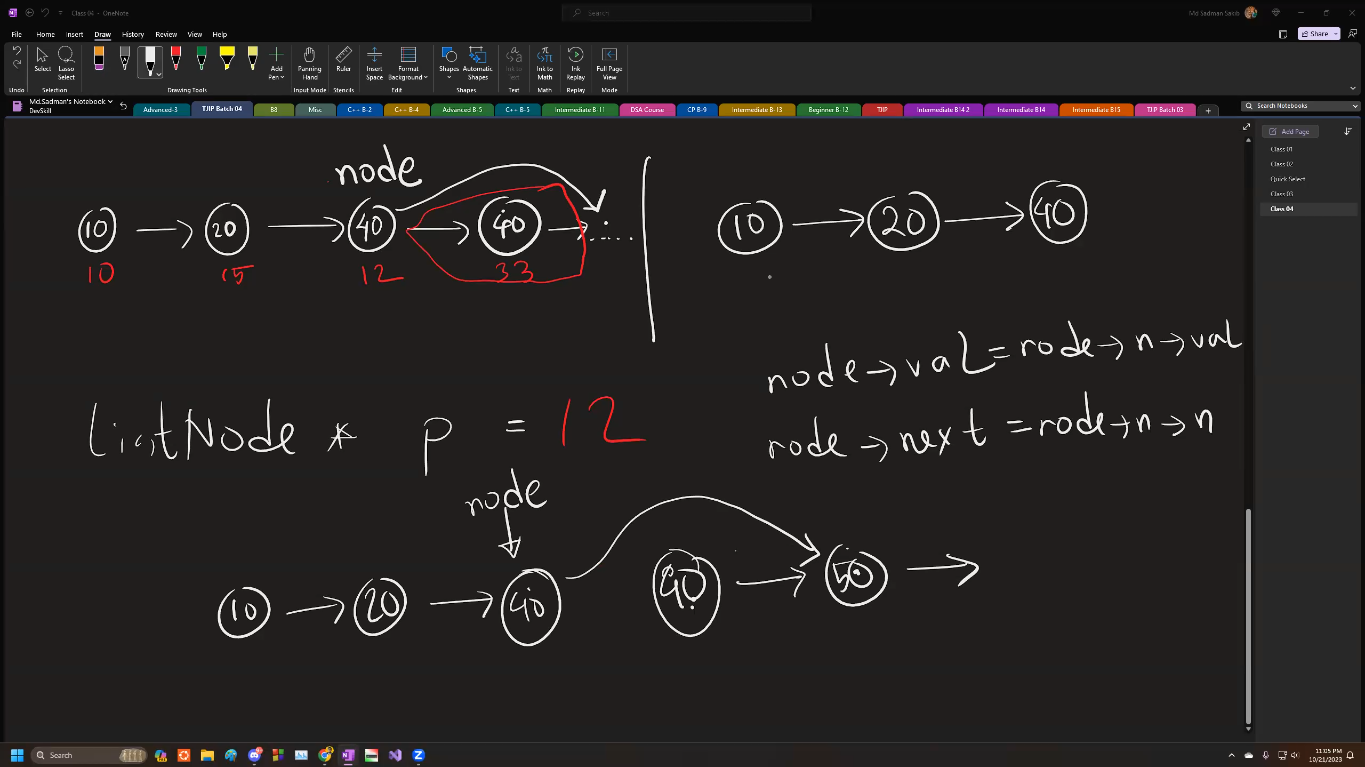 Class 04 - OneNote
Search
Md Sadman Sakib
File Home Insert Draw History Review View Help
Share
Undo
Select
Lasso Select
Selection
Add Pen
Drawing Tools
Panning Hand
Input Mode
Ruler
Stencils
Insert Space
Format Background
Edit
Shapes
Automatic Shapes
Shapes
Ink to Text
Text
Ink to Math
Math
Ink Replay
Replay
Full Page View
Mode
Md.Sadman's Notebook
DevSkill
Advanced-3 TJIP Batch 04 B8 Misc C++ B-2 C++ B-4 Advanced B-5 C++ B-5 Intermediate B-11 DSA Course CP B-9 Intermediate B-13 Beginner B-12 TJIP Intermediate B14.2 Intermediate B14 Intermediate B15 TJIP Batch 03 +
Search Notebooks
Add Page
Class 01
Class 02
Quick Select
Class 03
Class 04
node
10 → 20 → 40 → 40 →
10 15 12 33
10 → 20 → 40
node → val = node → n → val
node → next = node → n → n
ListNode * p = 12
node
10 → 20 → 40 40 → 50 →
Search
11:05 PM
10/21/2023